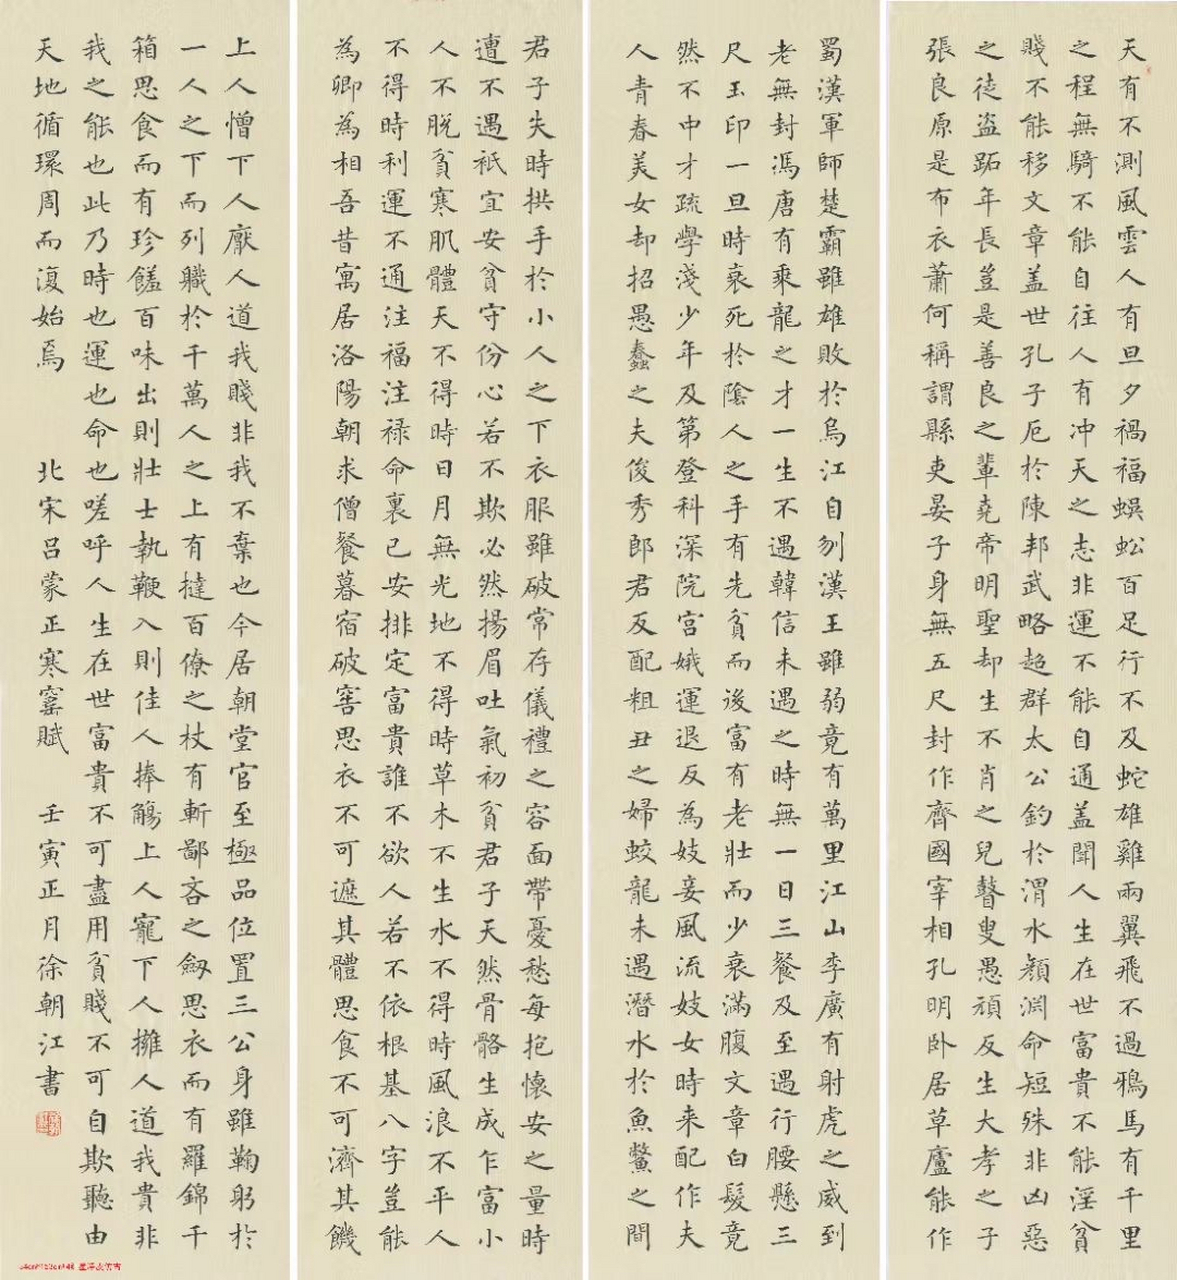 天有不測風雲人有旦夕禍福蜈蚣百足行不及蛇雄雞兩翼飛不過鴉馬有千里
之程無騎不能自往人有冲天之志非運不能自通盖聞人生在世富貴不能淫貧
賤不能移文章盖世孔子厄於陳邦武略超群太公釣於渭水顏淵命短殊非凶惡
之徒盜跖年長豈是善良之輩堯帝明聖却生不肖之兒瞽叟愚頑反生大孝之子
張良原是布衣蕭何稱謂縣吏晏子身無五尺封作齊國宰相孔明卧居草廬能作
蜀漢軍師楚霸雖雄敗於烏江自刎漢王雖弱竟有萬里江山李廣有射虎之威到
老無封馮唐有乘龍之才一生不遇韓信未遇之時無一日三餐及至遇行腰懸三
尺玉印一旦時衰死於陰人之手有先貧而後富有老壯而少衰滿腹文章白髮竟
然不中才疏學淺少年及第登科深院宮娥運退反為妓妾風流妓女時来配作夫
人青春美女却招愚蠢之夫俊秀郎君反配粗丑之婦蛟龍未遇潛水於魚鱉之間
君子失時拱手於小人之下衣服雖破常存儀禮之容面帶憂愁每抱懷安之量時
遭不遇祇宜安貧守份心若不欺必然揚眉吐氣初貧君子天然骨骼生成乍富小
人不脱貧寒肌體天不得時日月無光地不得時草木不生水不得時風浪不平人
不得時利運不通注福注禄命裏已安排定富貴誰不欲人若不依根基八字豈能
為卿為相吾昔寓居洛陽朝求僧餐暮宿破窖思衣不可遮其體思食不可濟其饑
上人憎下人厭人道我賤非我不棄也今居朝堂官至極品位置三公身雖鞠躬於
一人之下而列職於千萬人之上有撻百僚之杖有斬鄙吝之劍思衣而有羅錦千
箱思食而有珍饈百味出則壯士執鞭入則佳人捧觴上人寵下人擁人道我貴非
我之能也此乃時也運也命也嗟呼人生在世富貴不可盡用貧賤不可自欺聽由
天地循環周而復始焉 北宋呂蒙正寒窯賦 壬寅正月徐朝江書